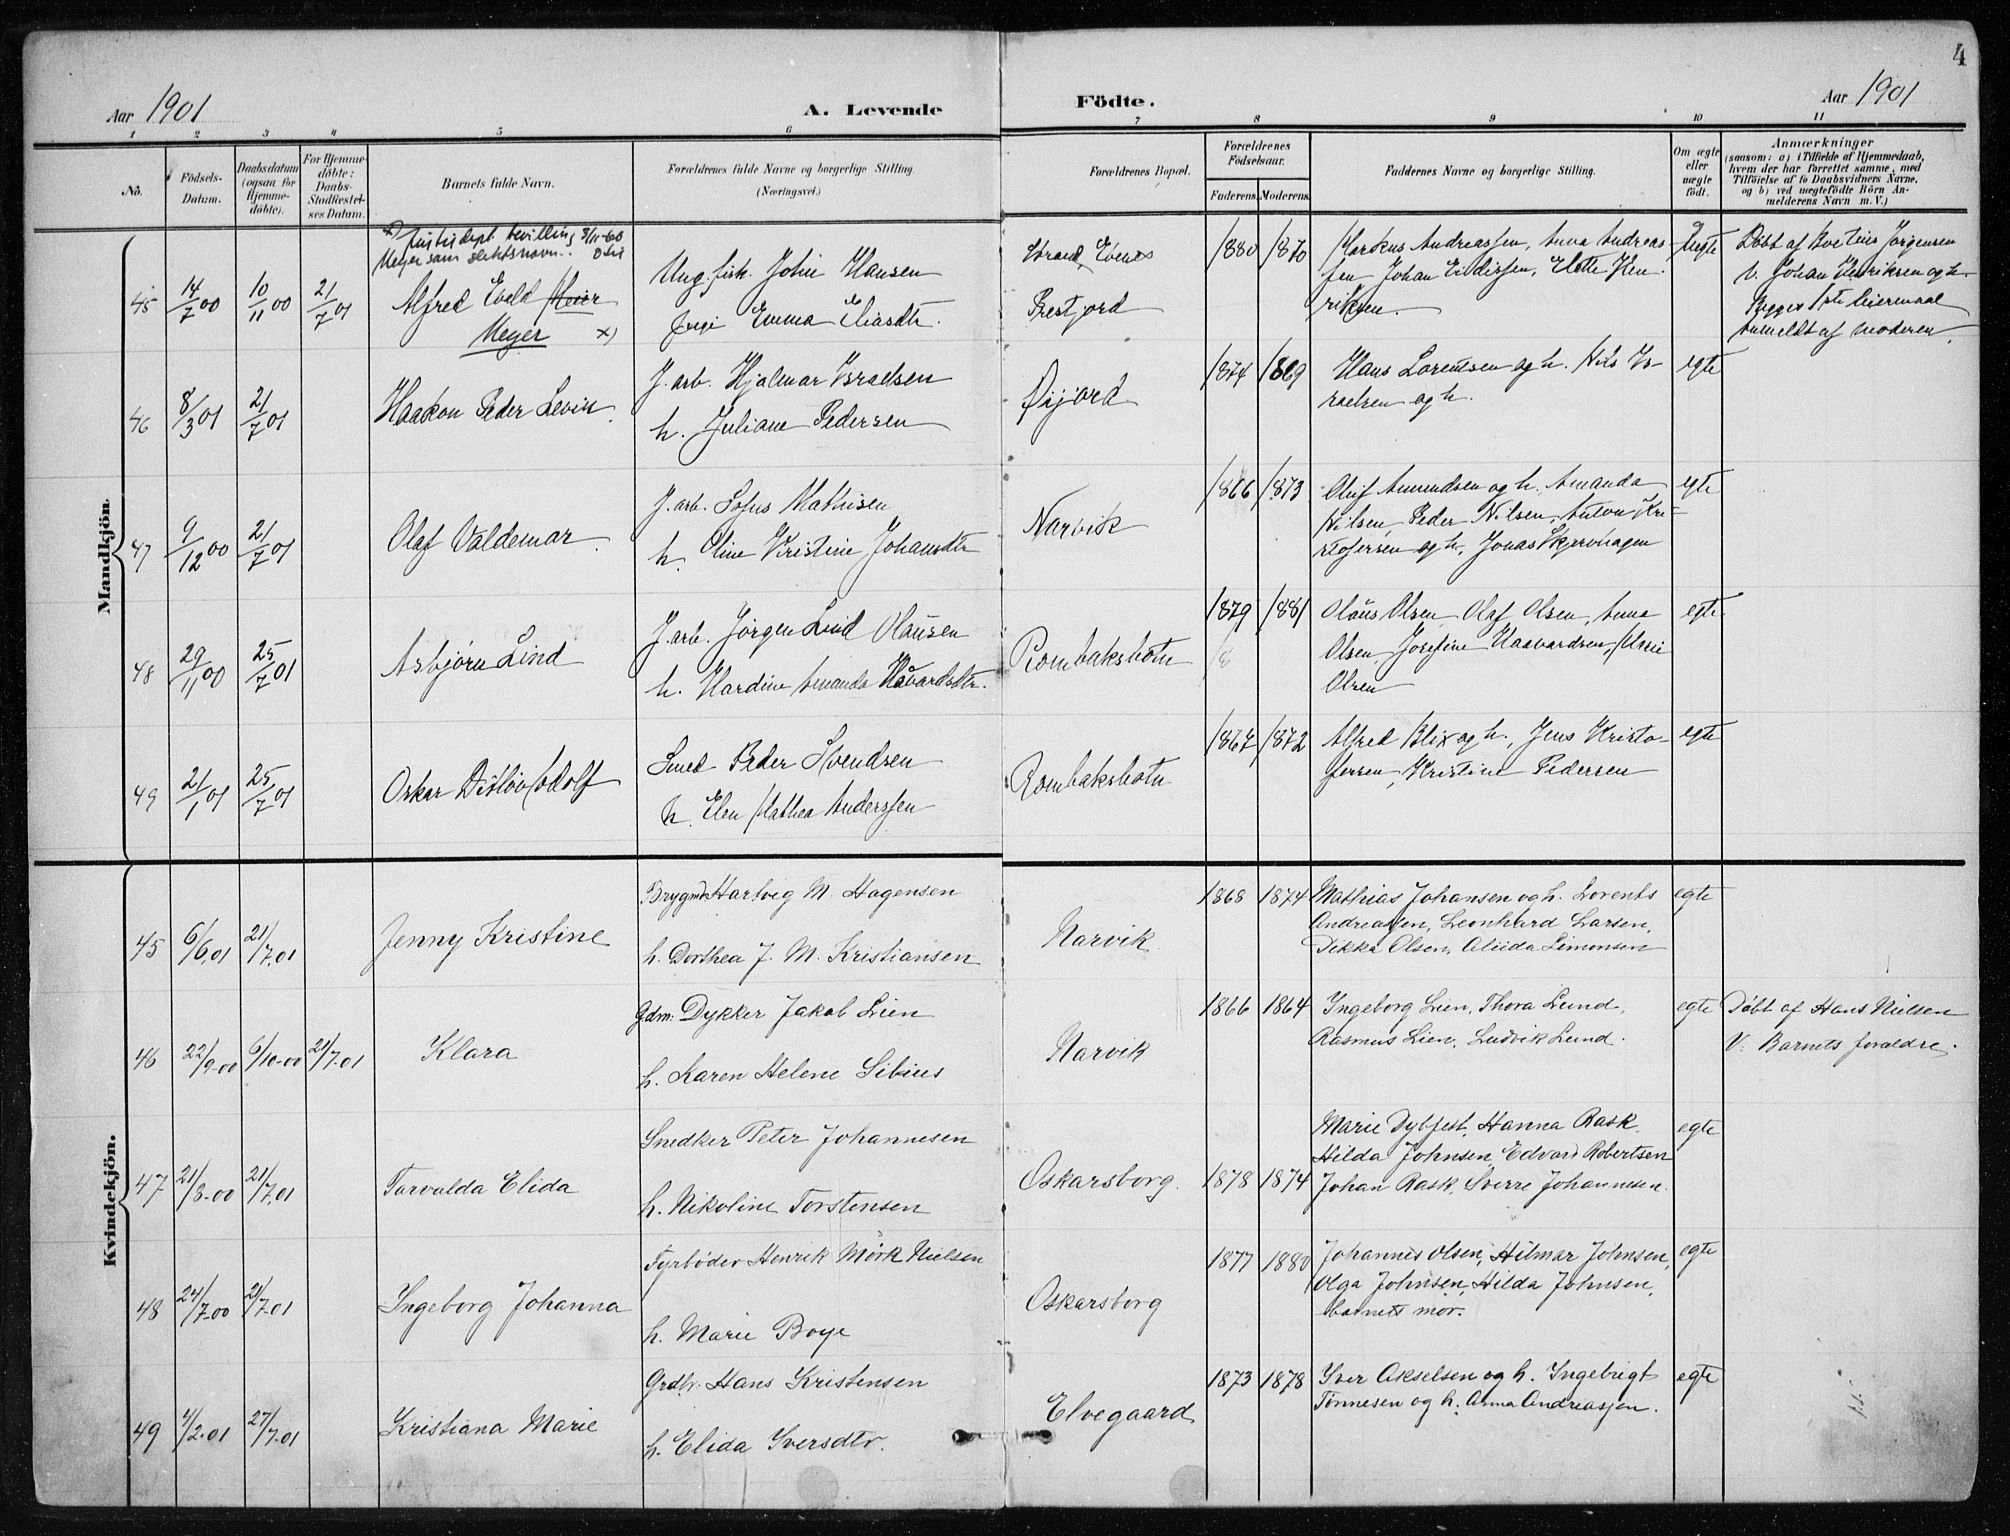 4
Aar 1901
A. Levende
Födte.
Aar 1901
1 2 3 4 5 6 7 8 9 10 11
No.
Födsels-
Datum.
Daabsdatum
(ogsaa for
Hjemme-
döbte).
For Hjemme-
döbte:
Daabs-
Stadfæstel-
ses Datum.
Barnets fulde Navn.
Forældrenes fulde Navne og borgerlige Stilling
(Næringsvei.)
Forældrenes Bopæl.
Forældrenes
Födselsaar.
Faderens. Moderens.
Faddernes Navne og borgerlige Stilling.
Om ægte
eller
uægte
födt.
Anmærkninger
(saasom: a) i Tilfælde af Hjemmedaab,
hvem der har forrettet samme, med
Tilföielse af to Daabsvidners Navne,
og b) ved uægtefödte Börn An-
melderens Navn m. V.)
Mandkjön.
x) Justisdept bevilling 3/11-60
Meyer som slektsnavn.
45 14/7 00 10/11 00 21/7 01
Alfred Evald Meier
Meyer x)
Ung. fisk. John Hansen
Emma Eliasdtr.
Strand, Evenes
Prestjord
1880 1870
Markus Andreassen, Anna Andreas-
sen, Johan
riksen.
Uegte
Döbt af Jörgensen
V. Johan Henriksen og h.
Begges 1ste leiermaal
Anmeldt af moderen.
46 8/3 01 21/7 01
Haakon Peder Levin
J. arb. Hjalmar Israelsen
h. Juliane Pedersen
Öijord
1874 1869
Hans Lorentsen og h. Nils Is-
raelsen og h.
egte
47 9/12 00 21/7 01
Olaf Valdemar
J. arb. Sofus Mathisen
h. Oline Kristine Johansdtr
Narvik
1866 1873
Oluf Amundsen og h. Amanda
Nilsen, Peder Nilsen, Anton Kri-
stofersen og h, Jonas Skjervhagen
egte
48 29/11 00 25/7 01
Asbjörn Lind
J. arb. Jörgen Lind Olausen
h. Hardine Amanda Håvardsdtr.
Rombaksbotn
1879 1881
Olaus Olsen, Olaf Olsen, Anna
Olsen, Josefine Haavardsen, Marie
Olsen
egte
49 21/1 01 25/7 01
Oskar Ditlöv Adolf
Smed Peder Svendsen
h. Elen Mathea Anderssen
Rombaksbotn
1867 1872
Alfred Blix og h., Jens Kristo-
fersen, Kristine Pedersen
egte
Kvindekjön.
45 6/6.01 21/7.01
Jenny Kristine
Brygm. Hartvig M. Hagensen
h. Dorthea J. M. Kristiansen
Narvik
1868 1874
Mathias Johansen og h. Lorents
Andreassen, Leonhard Larsen,
Dikka Olsen, Alida Simonsen
egte
46 22/9-00 6/10-00 21/7.01
Klara
Gdm. Dykker Jakob Lien
h. Karen Helene Sibius
Narvik
1866 1864
Ingeborg Lien, Thora Lund,
Rasmus Lien, Ludvik Lund.
egte
Döbt af Hans Nielsen
V. Barnets foraldre.
47 21/8-00 21/7.01
Torvalda Elida
Snedker Peter Johannesen
h. Nikoline Torstensen
Oskarsborg.
1878 1874
Marie Dybfest, Hanna Rask,
Hilda Johnsen, Edvard Robertsen
Johan Rask, Sverre Johannesen.
egte
48 24/7-00 21/7-01
Ingeborg Johanna
Fyrböder Henrik Mörk Nielsen
h. Marie Boye
Oskarsborg
1877 1880
Johannes Olsen, Hilmar Johnsen,
Olga Johnsen, Hilda Johnsen,
barnets mor.
egte
49 1/2.01 27/7.01
Kristiana Marie
Grdbr. Hans Kristensen
h. Elida Iversdtr.
Elvegaard
1873 1878
Iver Akselsen og h. Ingebrigt
Tönnesen og h. Anna Andreassen.
egte